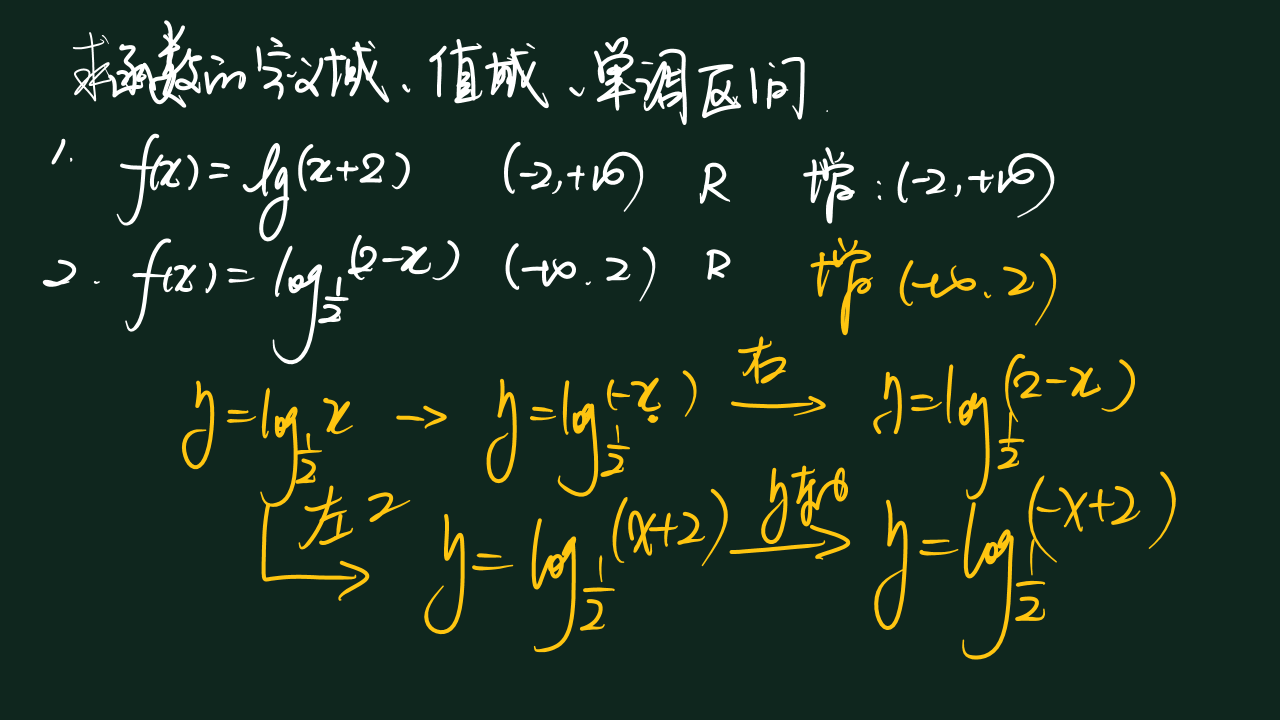 求函数的定义域、值域、单调区间
1. f(x)=lg(x+2) (-2,+∞) R 增:(-2,+∞)
2. f(x)=log_{1/2}(2-x) (-∞.2) R 增(-∞.2)
y=log_{1/2}x → y=log_{1/2}(-x) 右→ y=log_{1/2}(2-x)
左2→ y=log_{1/2}(x+2) y轴→ y=log_{1/2}(-x+2)